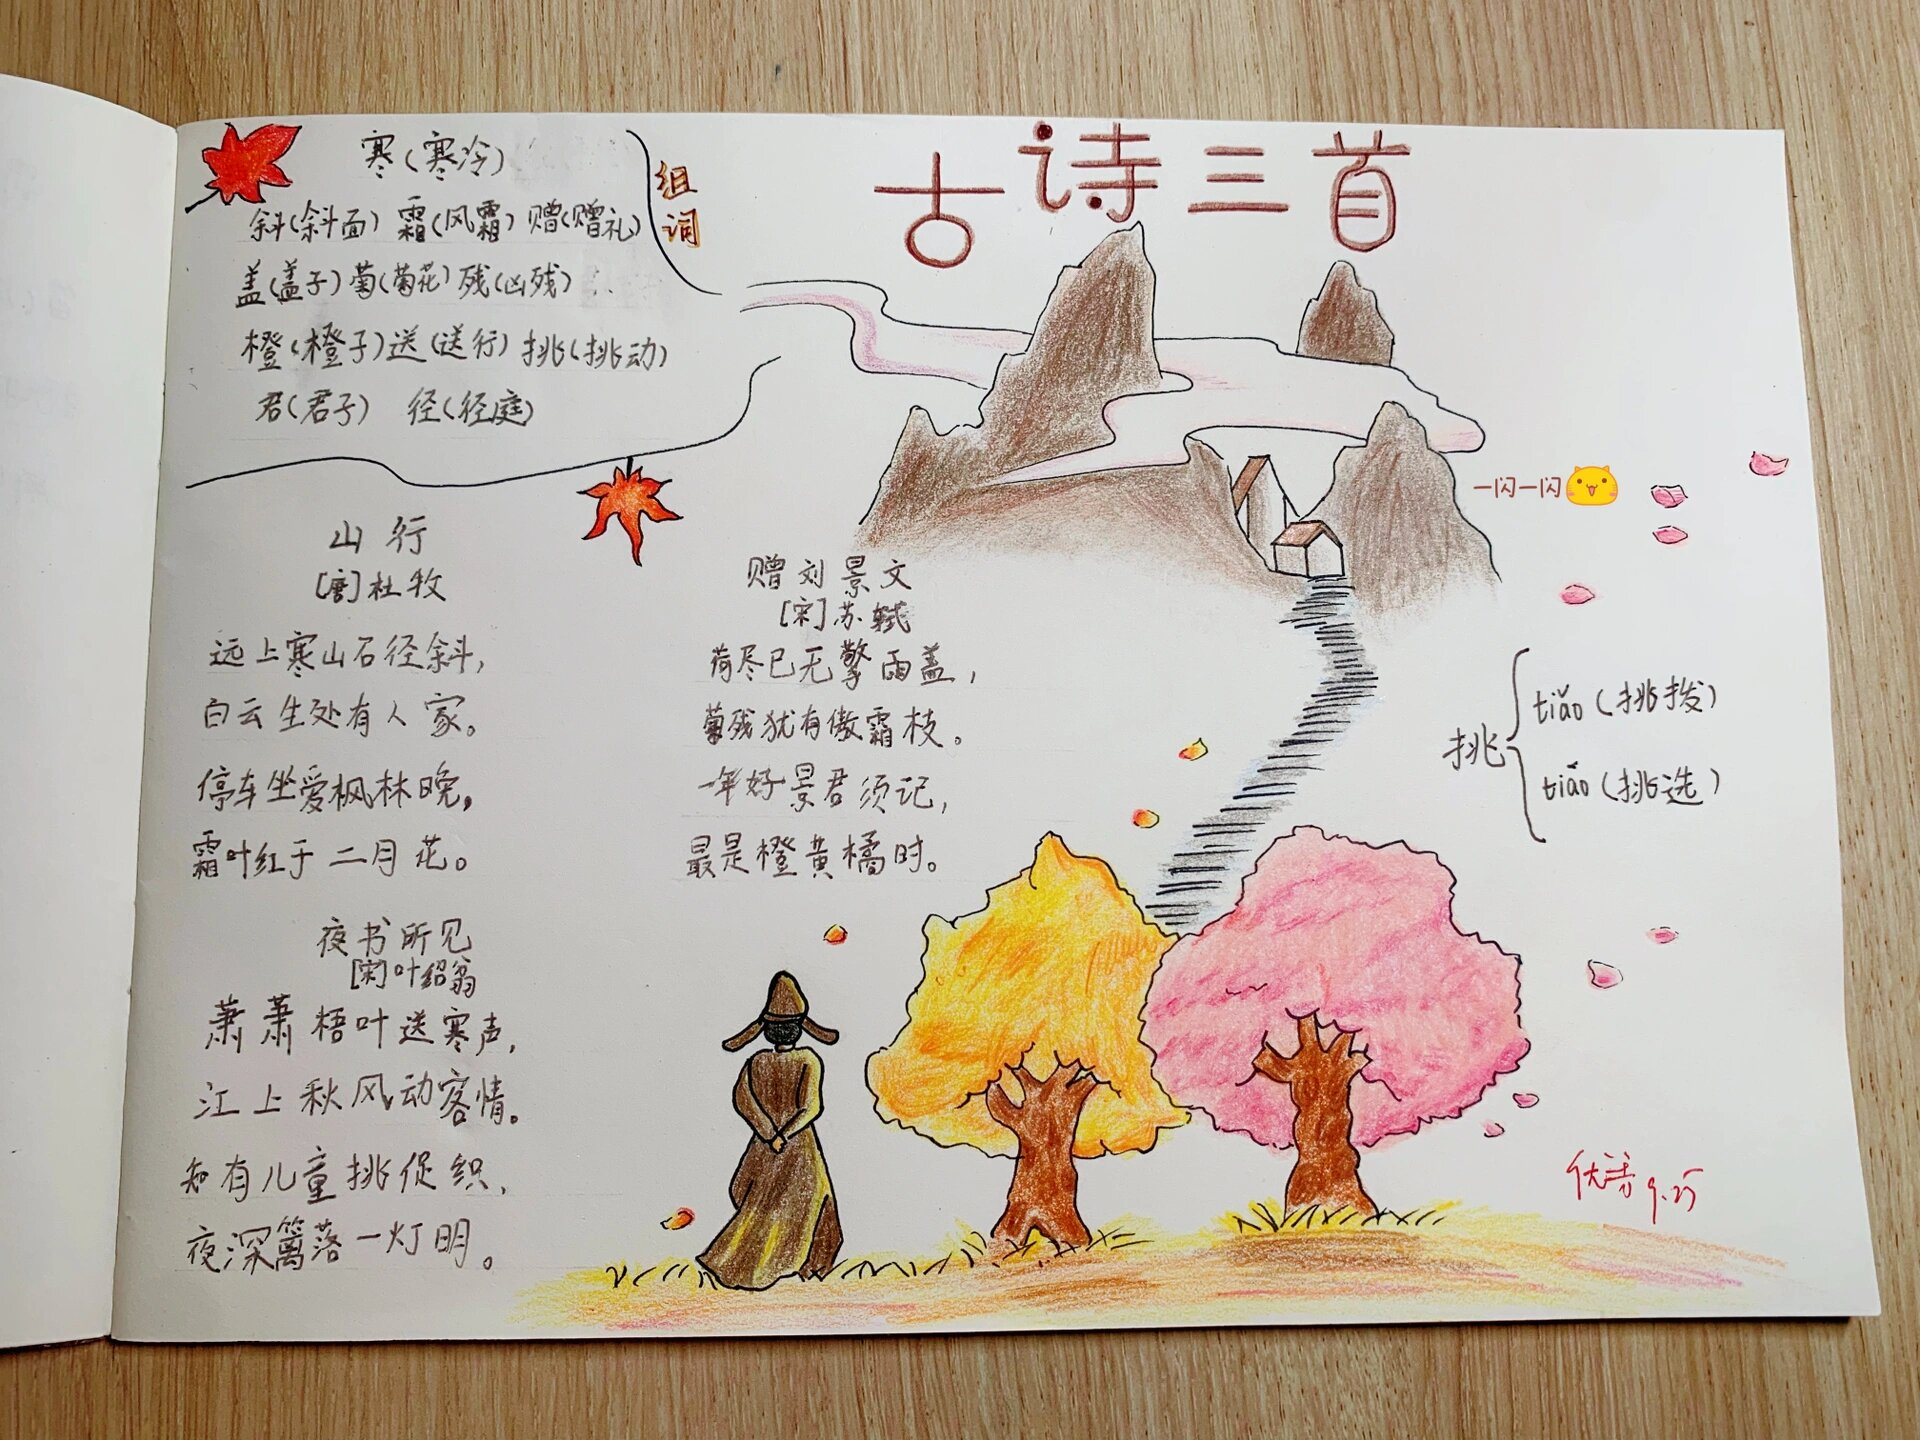 古诗三首
组词
寒(寒冷)
斜(斜面) 霜(风霜) 赠(赠礼)
盖(盖子) 菊(菊花) 残(凶残)
橙(橙子) 送(送行) 挑(挑动)
君(君子) 径(径庭)
山行
[唐]杜牧
远上寒山石径斜,
白云生处有人家。
停车坐爱枫林晚,
霜叶红于二月花。
夜书所见
[宋]叶绍翁
萧萧梧叶送寒声,
江上秋风动客情。
知有儿童挑促织,
夜深篱落一灯明。
赠刘景文
[宋]苏轼
荷尽已无擎雨盖,
菊残犹有傲霜枝。
一年好景君须记,
最是橙黄橘时。
一闪一闪
挑
tiǎo(挑拨)
tiāo(挑选)
9.25